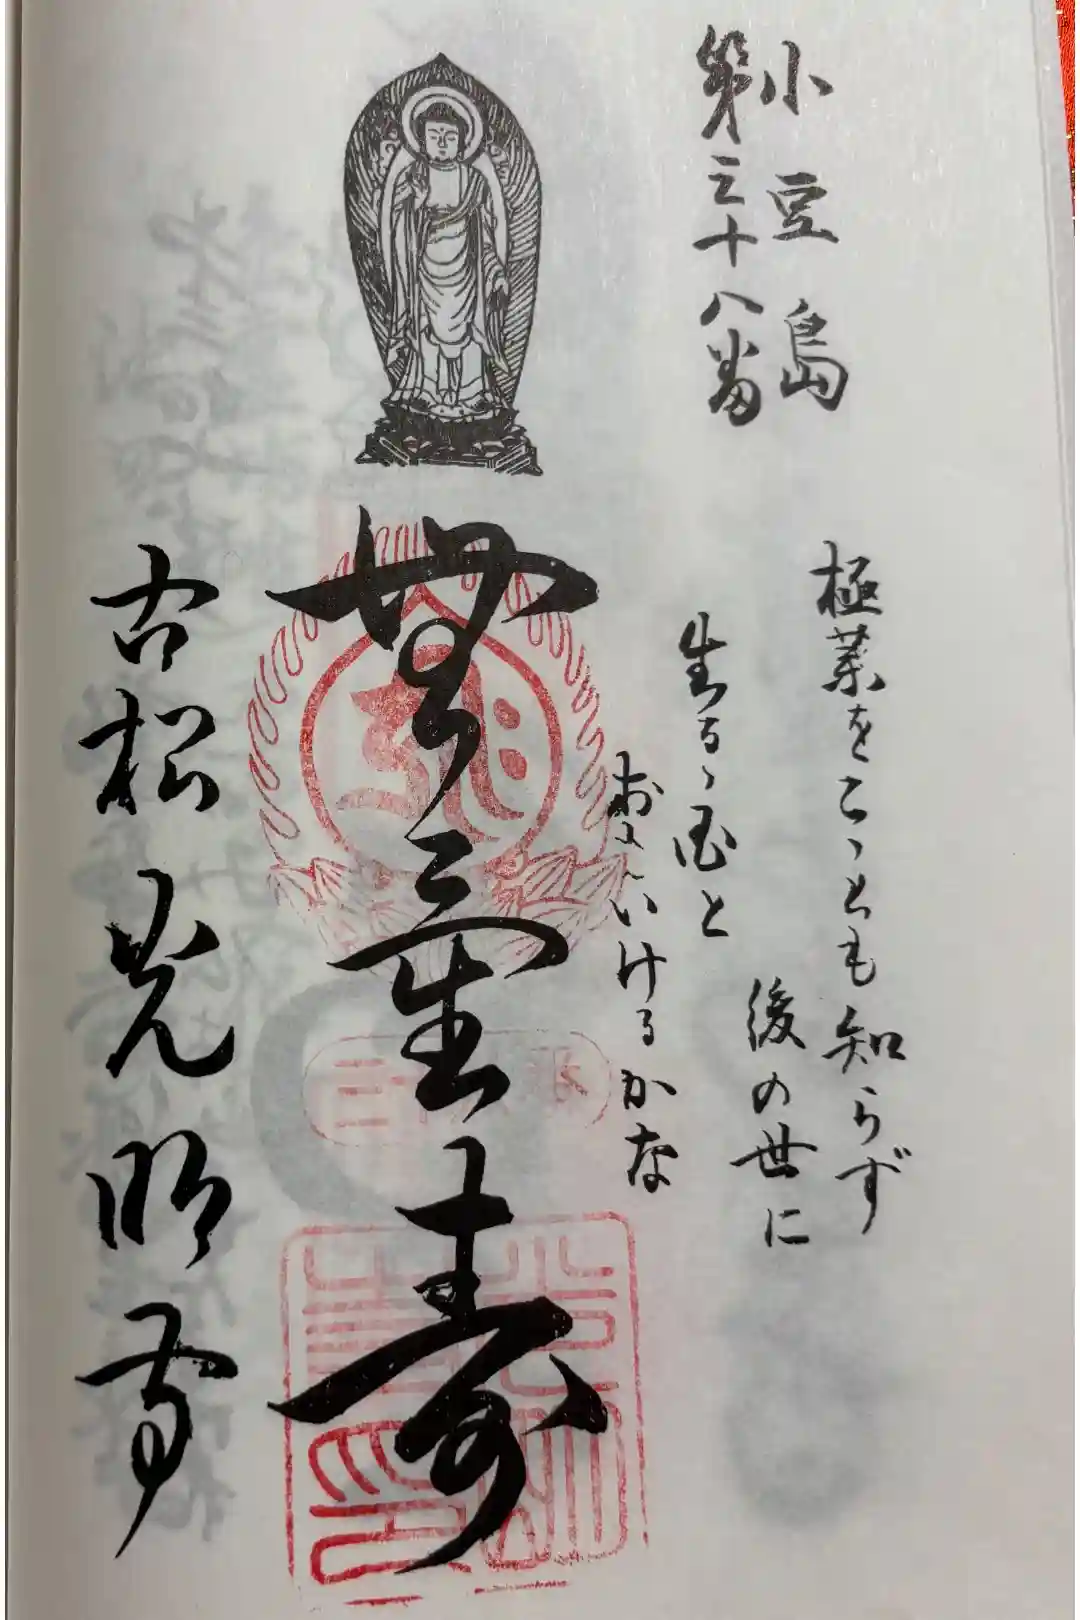 小豆島
第三十八番
極楽をこゝとも知らず
後の世に
生るゝ国と
おもいけるかな
無量寿
古松光明寺